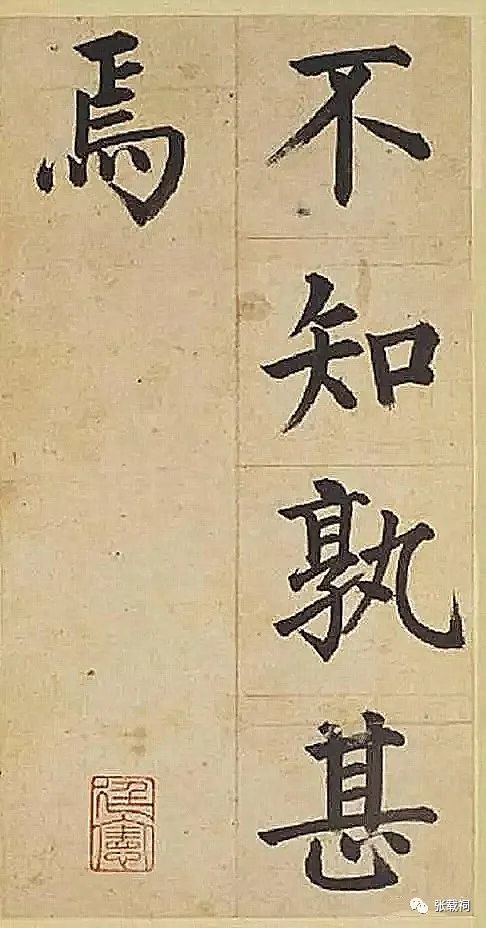 不知孰甚
焉
张载祠